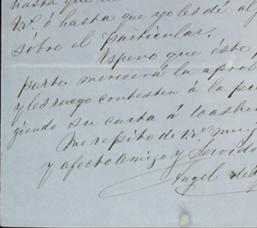 hasta que
V.º á hasta que yo les dé al
sobre el particular.
Espero que ésto
parte merecerá la apro
y les ruego contesten á la
giendo su carta á Washin
Me repito de V.º muy
y afecto amigo y Servido
Angel de